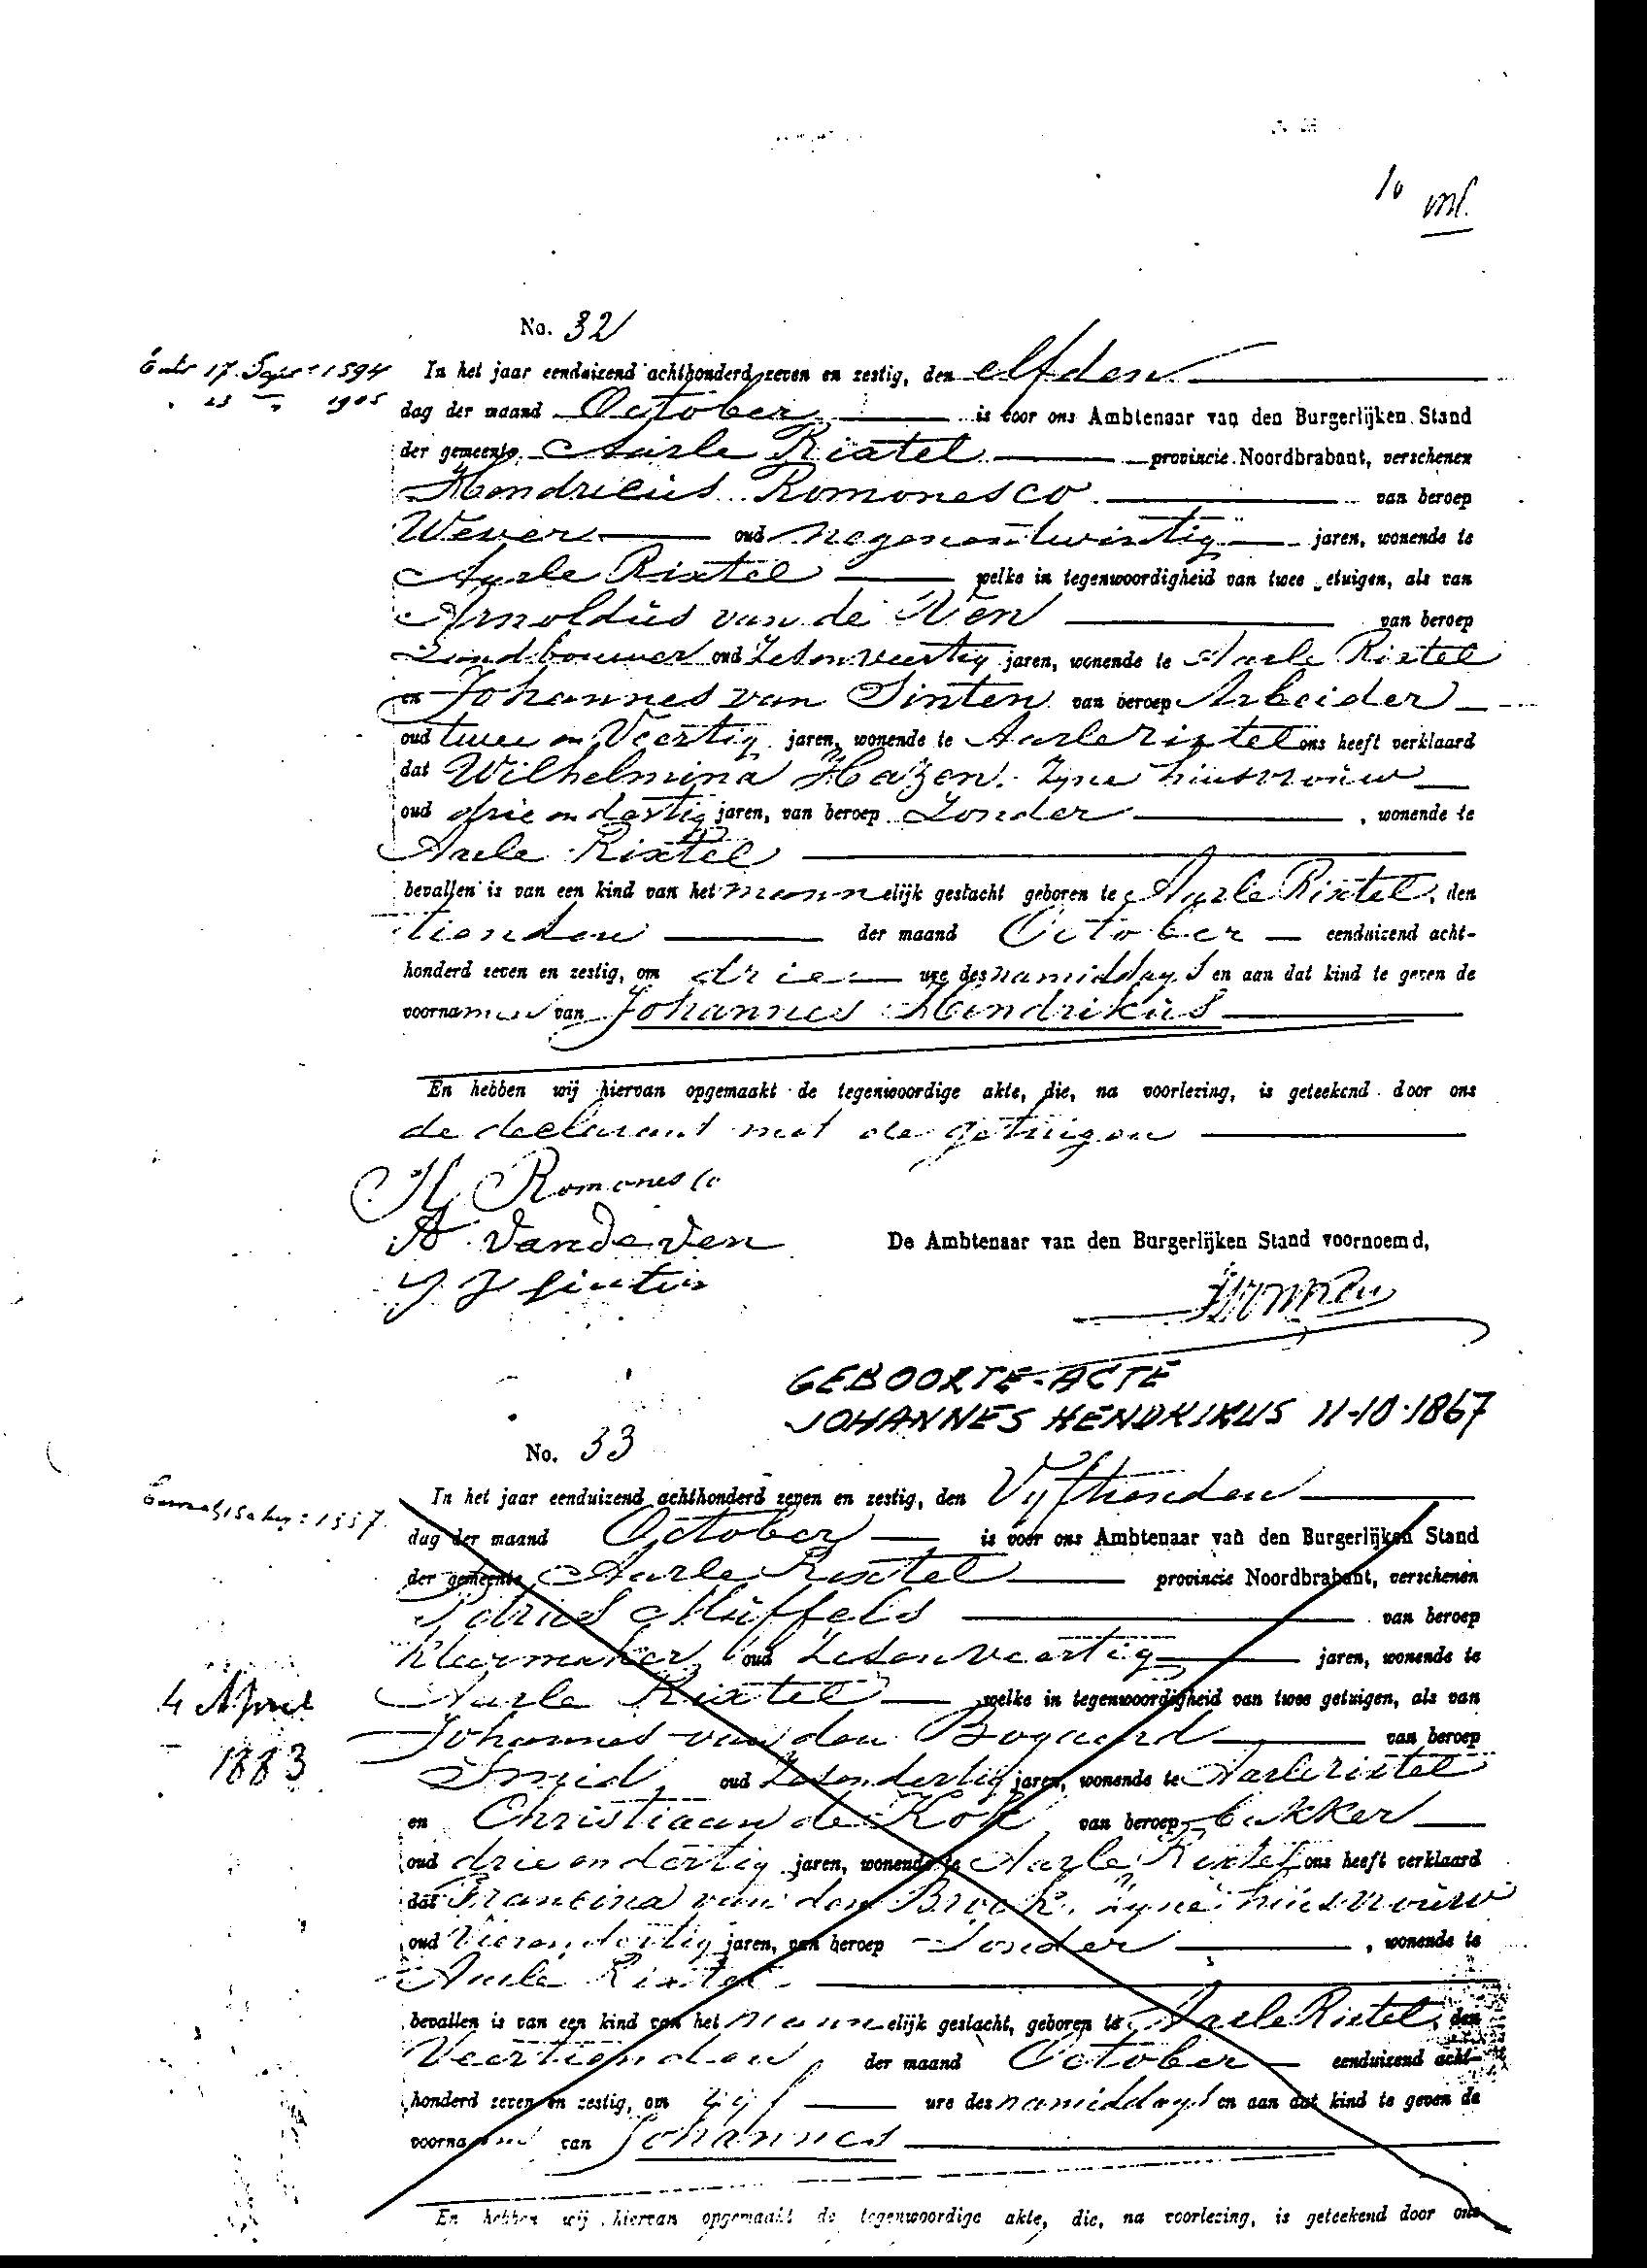 10
No. 32
Extr 17 Sept: 1894 In het jaar eenduizend achthonderd zeven en zestig, den elfden
" 23 " 1905 dag der maand October is voor ons Ambtenaar van den Burgerlijken Stand
der gemeente Aarle Rixtel provincie Noordbrabant, verschenen
Hendricus Romonesco van beroep
Wever oud negenentwintig jaren, wonende te
Aarle Rixtel welke in tegenwoordigheid van twee getuigen, als van
Arnoldus van de Ven van beroep
Landbouwer oud Zesenveertig jaren, wonende te Aarle Rixtel
en Johannes van Sinten van beroep Arbeider
oud twee en Veertig jaren, wonende te Aarlerixtel ons heeft verklaard
dat Wilhelmina Hazen. Zyne huisvrouw
oud drie en dertig jaren, van beroep Zonder, wonende te
Aarle Rixtel
bevallen is van een kind van het mannelijk geslacht geboren te Aarle Rixtel, den
tienden der maand October eenduizend acht-
honderd zeven en zestig, om drie ure des namiddags en aan dat kind te geven de
voornamen van Johannes Hendrikus
En hebben wij hiervan opgemaakt de tegenwoordige akte, die, na voorlezing, is geteekend door ons
de declarant met de getuigen
H. Romonesco
A. Vandeven
De Ambtenaar van den Burgerlijken Stand voornoemd,
J sinten
GEBOORTE-ACTE
JOHANNES HENDRIKUS 11-10-1867
No. 33
In het jaar eenduizend achthonderd zeven en zestig, den Vyftienden
dag der maand October is voor ons Ambtenaar van den Burgerlijken Stand
der gemeente Aarle Rixtel provincie Noordbrabant, verschenen
Petrus Muffels van beroep
kleermaker oud Zesenveertig jaren, wonende te
4 April Aarle Rixtel welke in tegenwoordigheid van twee getuigen, als van
1883 Johannes van den Bogaard van beroep
Smid, oud Zesendertig jaren, wonende te Aarlerixtel
en Christiaan de Kok van beroep bakker
oud drie en dertig jaren, wonende te Aarle Rixtel ons heeft verklaard
dat Francina van den Broek. zyne huisvrouw
oud Vierendertig jaren, van beroep Zonder, wonende te
Aarle Rixtel
bevallen is van een kind van het mannelijk geslacht, geboren te Aarle Rixtel, den
Veertienden der maand October eenduizend acht-
honderd zeven en zestig, om vyf ure des namiddags en aan dat kind te geven de
voornaam van Johannes
En hebben wij hiervan opgemaakt de tegenwoordige akte, die, na voorlezing, is geteekend door ons